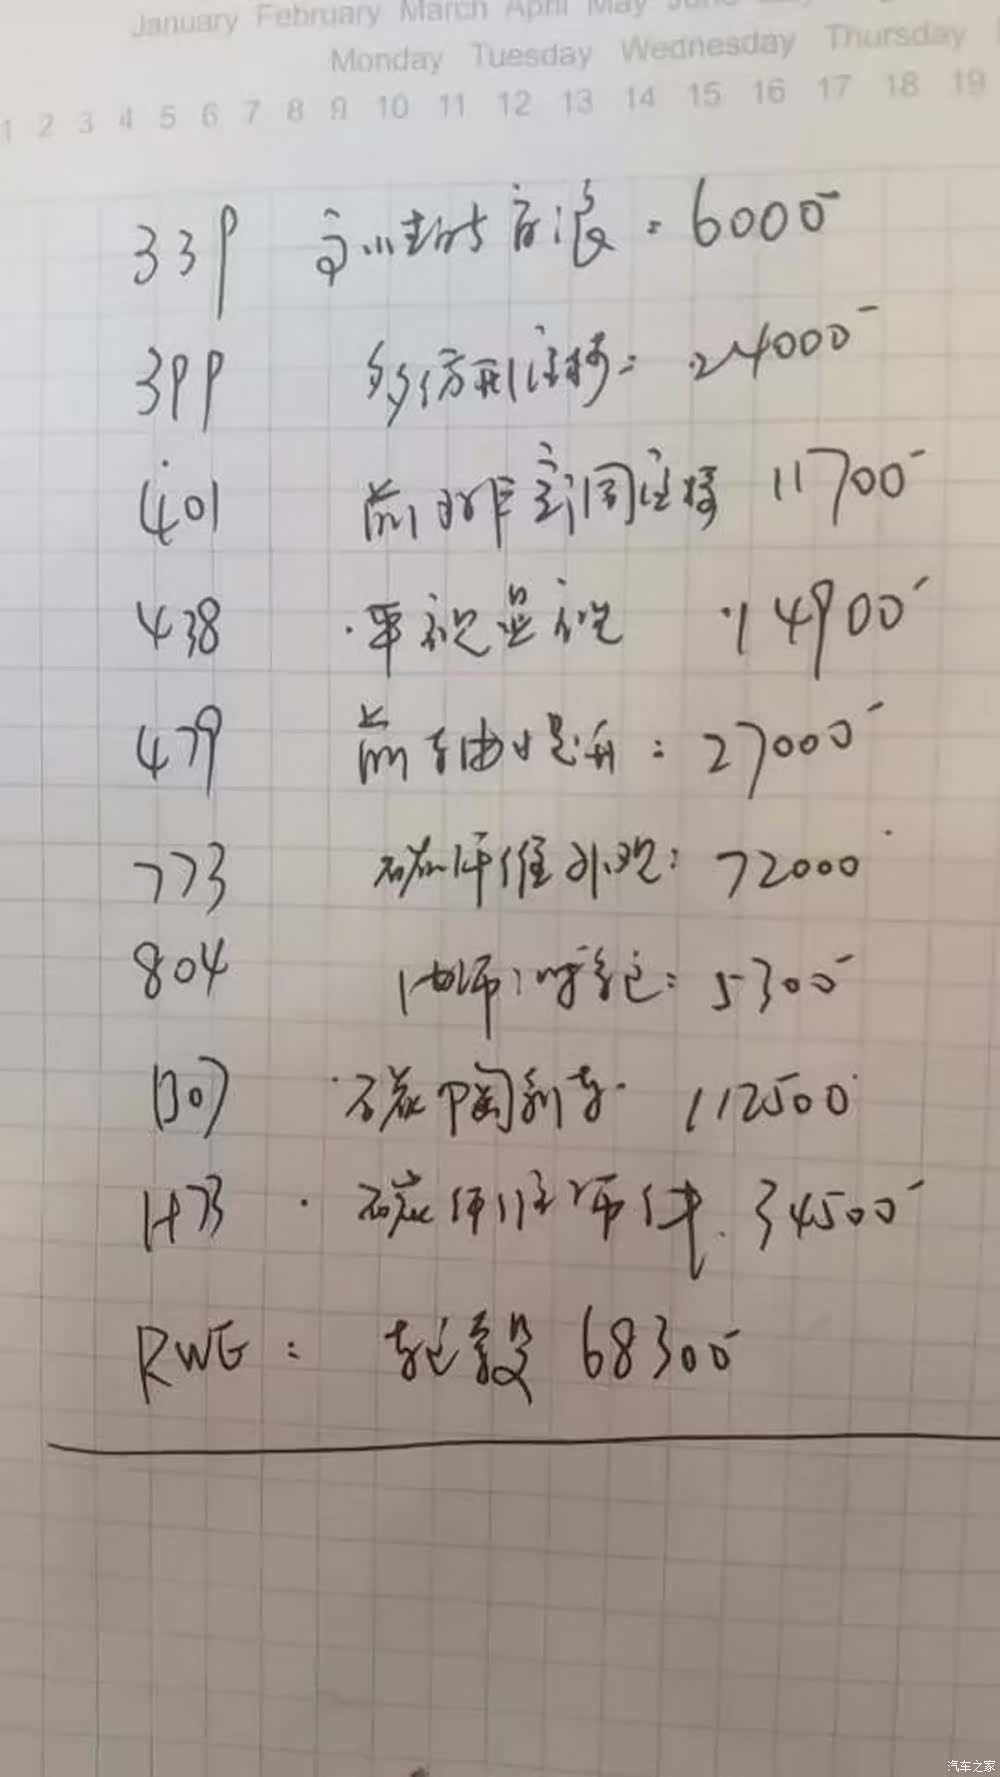 January February March April May June
Monday Tuesday Wednesday Thursday
1 2 3 4 5 6 7 8 9 10 11 12 13 14 15 16 17 18 19
339 : 6000
399 座椅: 24000
401 前 座椅 11700
438 平视显示 14900
479 前轴提升: 27000
773 碳纤维外观: 72000
804 : 5300
1307 碳陶刹车 112500
1473 碳纤维饰件 34500
RWE: 轮毂 68300
汽车之家